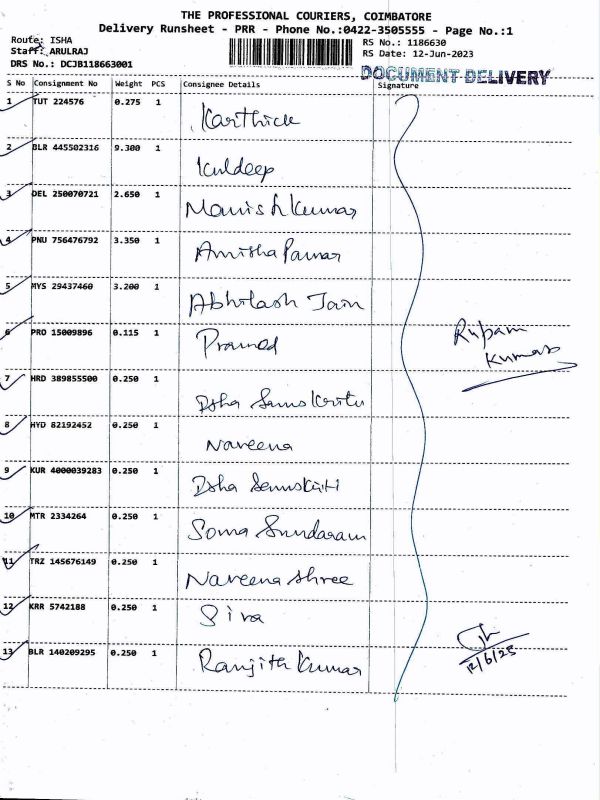 THE PROFESSIONAL COURIERS, COIMBATORE
Delivery Runsheet - PRR - Phone No.:0422-3505555 - Page No.:1
Route: ISHA
Staff: ARULRAJ
DRS No.: DCJB118663001
RS No.: 1186630
RS Date: 12-Jun-2023
DOCUMENT DELIVERY
S No Consignment No Weight PCS Consignee Details Signature
1 TUT 224576 0.275 1 Karthick
2 BLR 445502316 9.300 1 Kuldeep
3 DEL 250070721 2.650 1 Manish Kumar
4 PNU 756476792 3.350 1 Amisha Parmar
5 MYS 29437460 3.200 1 Abhilash Jain
6 PRO 15009896 0.115 1 Pramod
Rupam
Kumar
7 HRD 389855500 0.250 1 Isha Samskriti
8 HYD 82192452 0.250 1 Naveena
9 KUR 4000039283 0.250 1 Isha Samskriti
10 MTR 2334264 0.250 1 Soma Sundaram
11 TRZ 145676149 0.250 1 Naveena shree
12 KRR 5742188 0.250 1 Siva
13 BLR 140209295 0.250 1 Ranjith Kumar
12/6/25